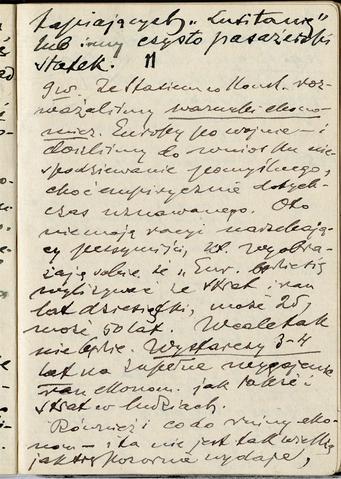 tapiających „Lusitanię”
lub inny czysto pasażerski
statek. "
9 w. Ze Stasiem w Konst. roz-
ważaliśmy warunki ekono-
micz. Europy po wojnie – i
doszliśmy do wniosku nie-
spodziewanie pomyślnego,
choć empirycznie dotych-
czas uznawanego. Oto
nie mają racyi narzekają-
cy pesymiści, wyobra-
żają sobie że „Eur. będzie się
wylizywać ze strat i ran
lat dziesiątki, może 25,
może 50 lat. Wcale tak
nie będzie. Wystarczy 3-4
lat na zupełne wygojenie
ran ekonom. jak także i
strat w ludziach.
Również i co do ruiny eko-
nom – i ta nie jest tak wielką
jak się pozornie wydaje,